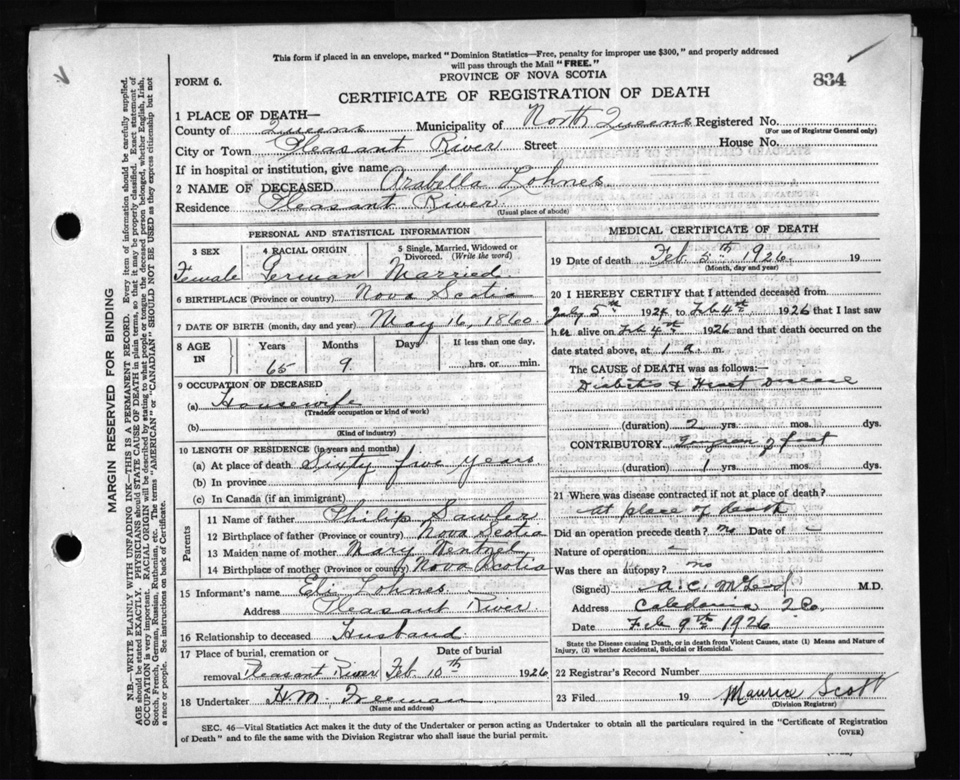 This form if placed in an envelope, marked "Dominion Statistics—Free, penalty for improper use $300," and properly addressed
will pass through the Mail "FREE."
FORM 6.
PROVINCE OF NOVA SCOTIA
834
CERTIFICATE OF REGISTRATION OF DEATH
1 PLACE OF DEATH—
County of Queens Municipality of North Queens Registered No.
(For use of Registrar General only)
City or Town Pleasant River Street House No.
If in hospital or institution, give name
2 NAME OF DECEASED Arabella Lohnes
Residence Pleasant River
(Usual place of abode)
PERSONAL AND STATISTICAL INFORMATION
3 SEX 4 RACIAL ORIGIN 5 Single, Married, Widowed or
Divorced. (Write the word)
Female German Married
6 BIRTHPLACE (Province or country) Nova Scotia
7 DATE OF BIRTH (month, day and year) May 16, 1860
8 AGE IN Years Months Days If less than one day,
65 9 hrs. or min.
9 OCCUPATION OF DECEASED
(a) Housewife
(Trade or occupation or kind of work)
(b)
(Kind of industry)
10 LENGTH OF RESIDENCE (in years and months)
(a) At place of death Sixty five years
(b) In province
(c) In Canada (if an immigrant)
Parents
11 Name of father Philip Sawler
12 Birthplace of father (Province or country) Nova Scotia
13 Maiden name of mother Mary
14 Birthplace of mother (Province or country) Nova Scotia
15 Informant's name Eli Lohnes
Address Pleasant River
16 Relationship to deceased Husband
17 Place of burial, cremation or Date of burial
removal Pleasant River Feb 10th 1926
18 Undertaker HM. Freeman
(Name and address)
MEDICAL CERTIFICATE OF DEATH
19 Date of death Feb 5th 1926 19
(Month, day and year)
20 I HEREBY CERTIFY that I attended deceased from
5th 192 to Feb 4th, 1926 that I last saw
her alive on Feb 4th 1926 and that death occurred on the
date stated above, at 1 a. m.
The CAUSE of DEATH was as follows:—
Diabetes & Heart Disease
(duration) 2 yrs. mos. dys.
CONTRIBUTORY of foot
(duration) 1 yrs. mos. dys.
21 Where was disease contracted if not at place of death?
at place of death
Did an operation precede death? no Date of -
Nature of operation -
Was there an autopsy? no
(Signed) A. C. McLeod M.D.
Address Caledonia Q Co.
Date Feb 9th 1926
State the Disease causing Death, or in death from Violent Causes, state (1) Means and Nature of
Injury, (2) whether Accidental, Suicidal or Homicidal.
22 Registrar's Record Number
23 Filed 19 Maurice Scott
(Division Registrar)
SEC. 46—Vital Statistics Act makes it the duty of the Undertaker or person acting as Undertaker to obtain all the particulars required in the "Certificate of Registration
of Death" and to file the same with the Division Registrar who shall issue the burial permit.
(OVER)
MARGIN RESERVED FOR BINDING
N.B.—WRITE PLAINLY WITH UNFADING INK—THIS IS A PERMANENT RECORD. Every item of information should be carefully supplied.
AGE should be stated EXACTLY. PHYSICIANS should STATE CAUSE OF DEATH in plain terms, so that it may be properly classified. Exact statement of
OCCUPATION is very important. RACIAL ORIGIN will be described by stating to what people or race the deceased person belonged, whether English, Irish,
Scotch, French, German, Russian, Ruthenian, etc. The terms "AMERICAN" or "CANADIAN" SHOULD NOT BE USED as they express citizenship but not
a race or people. See instructions on back of Certificate.